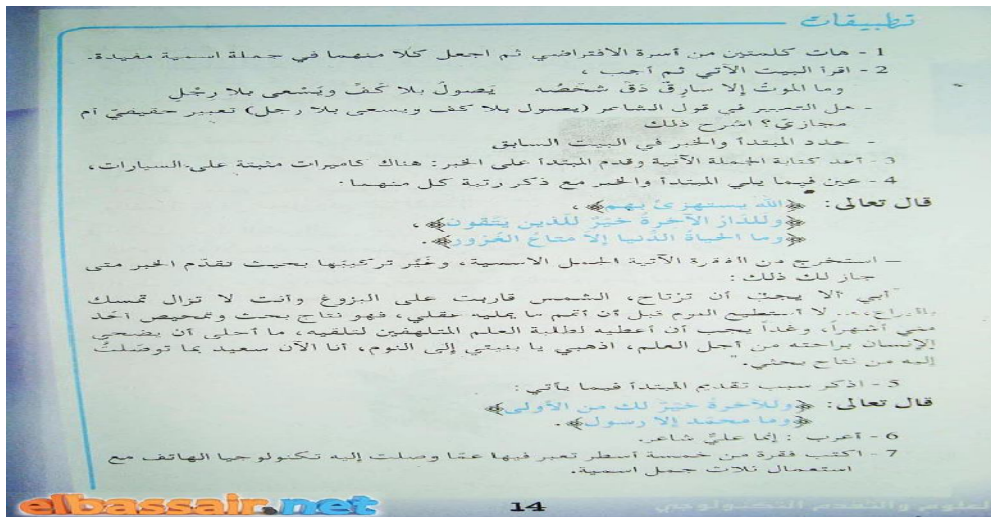 تطبيقات
1 - هات كلمتين من أسرة الافتراضي ثم اجعل كلا منهما في جملة اسمية مفيدة.
2 - اقرأ البيت الآتي ثم أجب :
وما الموتُ إلا سارقٌ دَقّ شخصُه يَصولُ بلا كَفّ ويَسْعى بلا رِجْلِ
- هل التعبير في قول الشاعر (يصول بلا كف ويسعى بلا رجل) تعبير حقيقيّ أم
مجازيّ؟ اشرح ذلك
- حدد المبتدأ والخبر في البيت السابق
3 - أعد كتابة الجملة الآتية وقدم المبتدأ على الخبر: هناك كاميرات مثبتة على السيارات،
4 - عين فيما يلي المبتدأ والخبر مع ذكر رتبة كل منهما.
قال تعالى: ﴿اللّه يستهزئ بهم﴾،
﴿وللدّار الآخرةُ خَيرٌ للّذين يتّقون﴾،
﴿وما الحياةُ الدُّنيا إلاّ متاعُ الغُرور﴾.
– استخرج من الفقرة الآتية الجمل الاسمية، وغَيّر تركيبَها بحيث تقدّم الخبر متى
جاز لك ذلك :
"أبي ألا يجبُ أن ترتاح، الشمس قاربت على البزوغ وأنت لا تزال تمسك
... لا أستطيع النوم قبل أن أتمم ما يمليه عقلي، فهو نتاج بحث وتمحيص أخذ
مني أشهراً، وغداً يجب أن أعطيه لطلبة العلم المتلهفين لتلقيه، ما أحلى أن يضحي
الإنسان براحته من أجل العلم، اذهبي يا بنيتي إلى النوم، أنا الآن سعيد بما توصّلتُ
إليه من نتاج بحثي."
5 - اذكر سبب تقديم المبتدأ فيما يأتي :
قال تعالى: ﴿وللآخرةُ خَيْرٌ لك من الأولى﴾
﴿وما محمد إلا رسول﴾.
6 - أعرب : إنما عليٌّ شاعر.
7 - اكتب فقرة من خمسة أسطر تعبر فيها عمّا وصلت إليه تكنولوجيا الهاتف مع
استعمال ثلاث جمل اسمية.
elbassair.net
14
العلوم والتقدم التكنولوجي